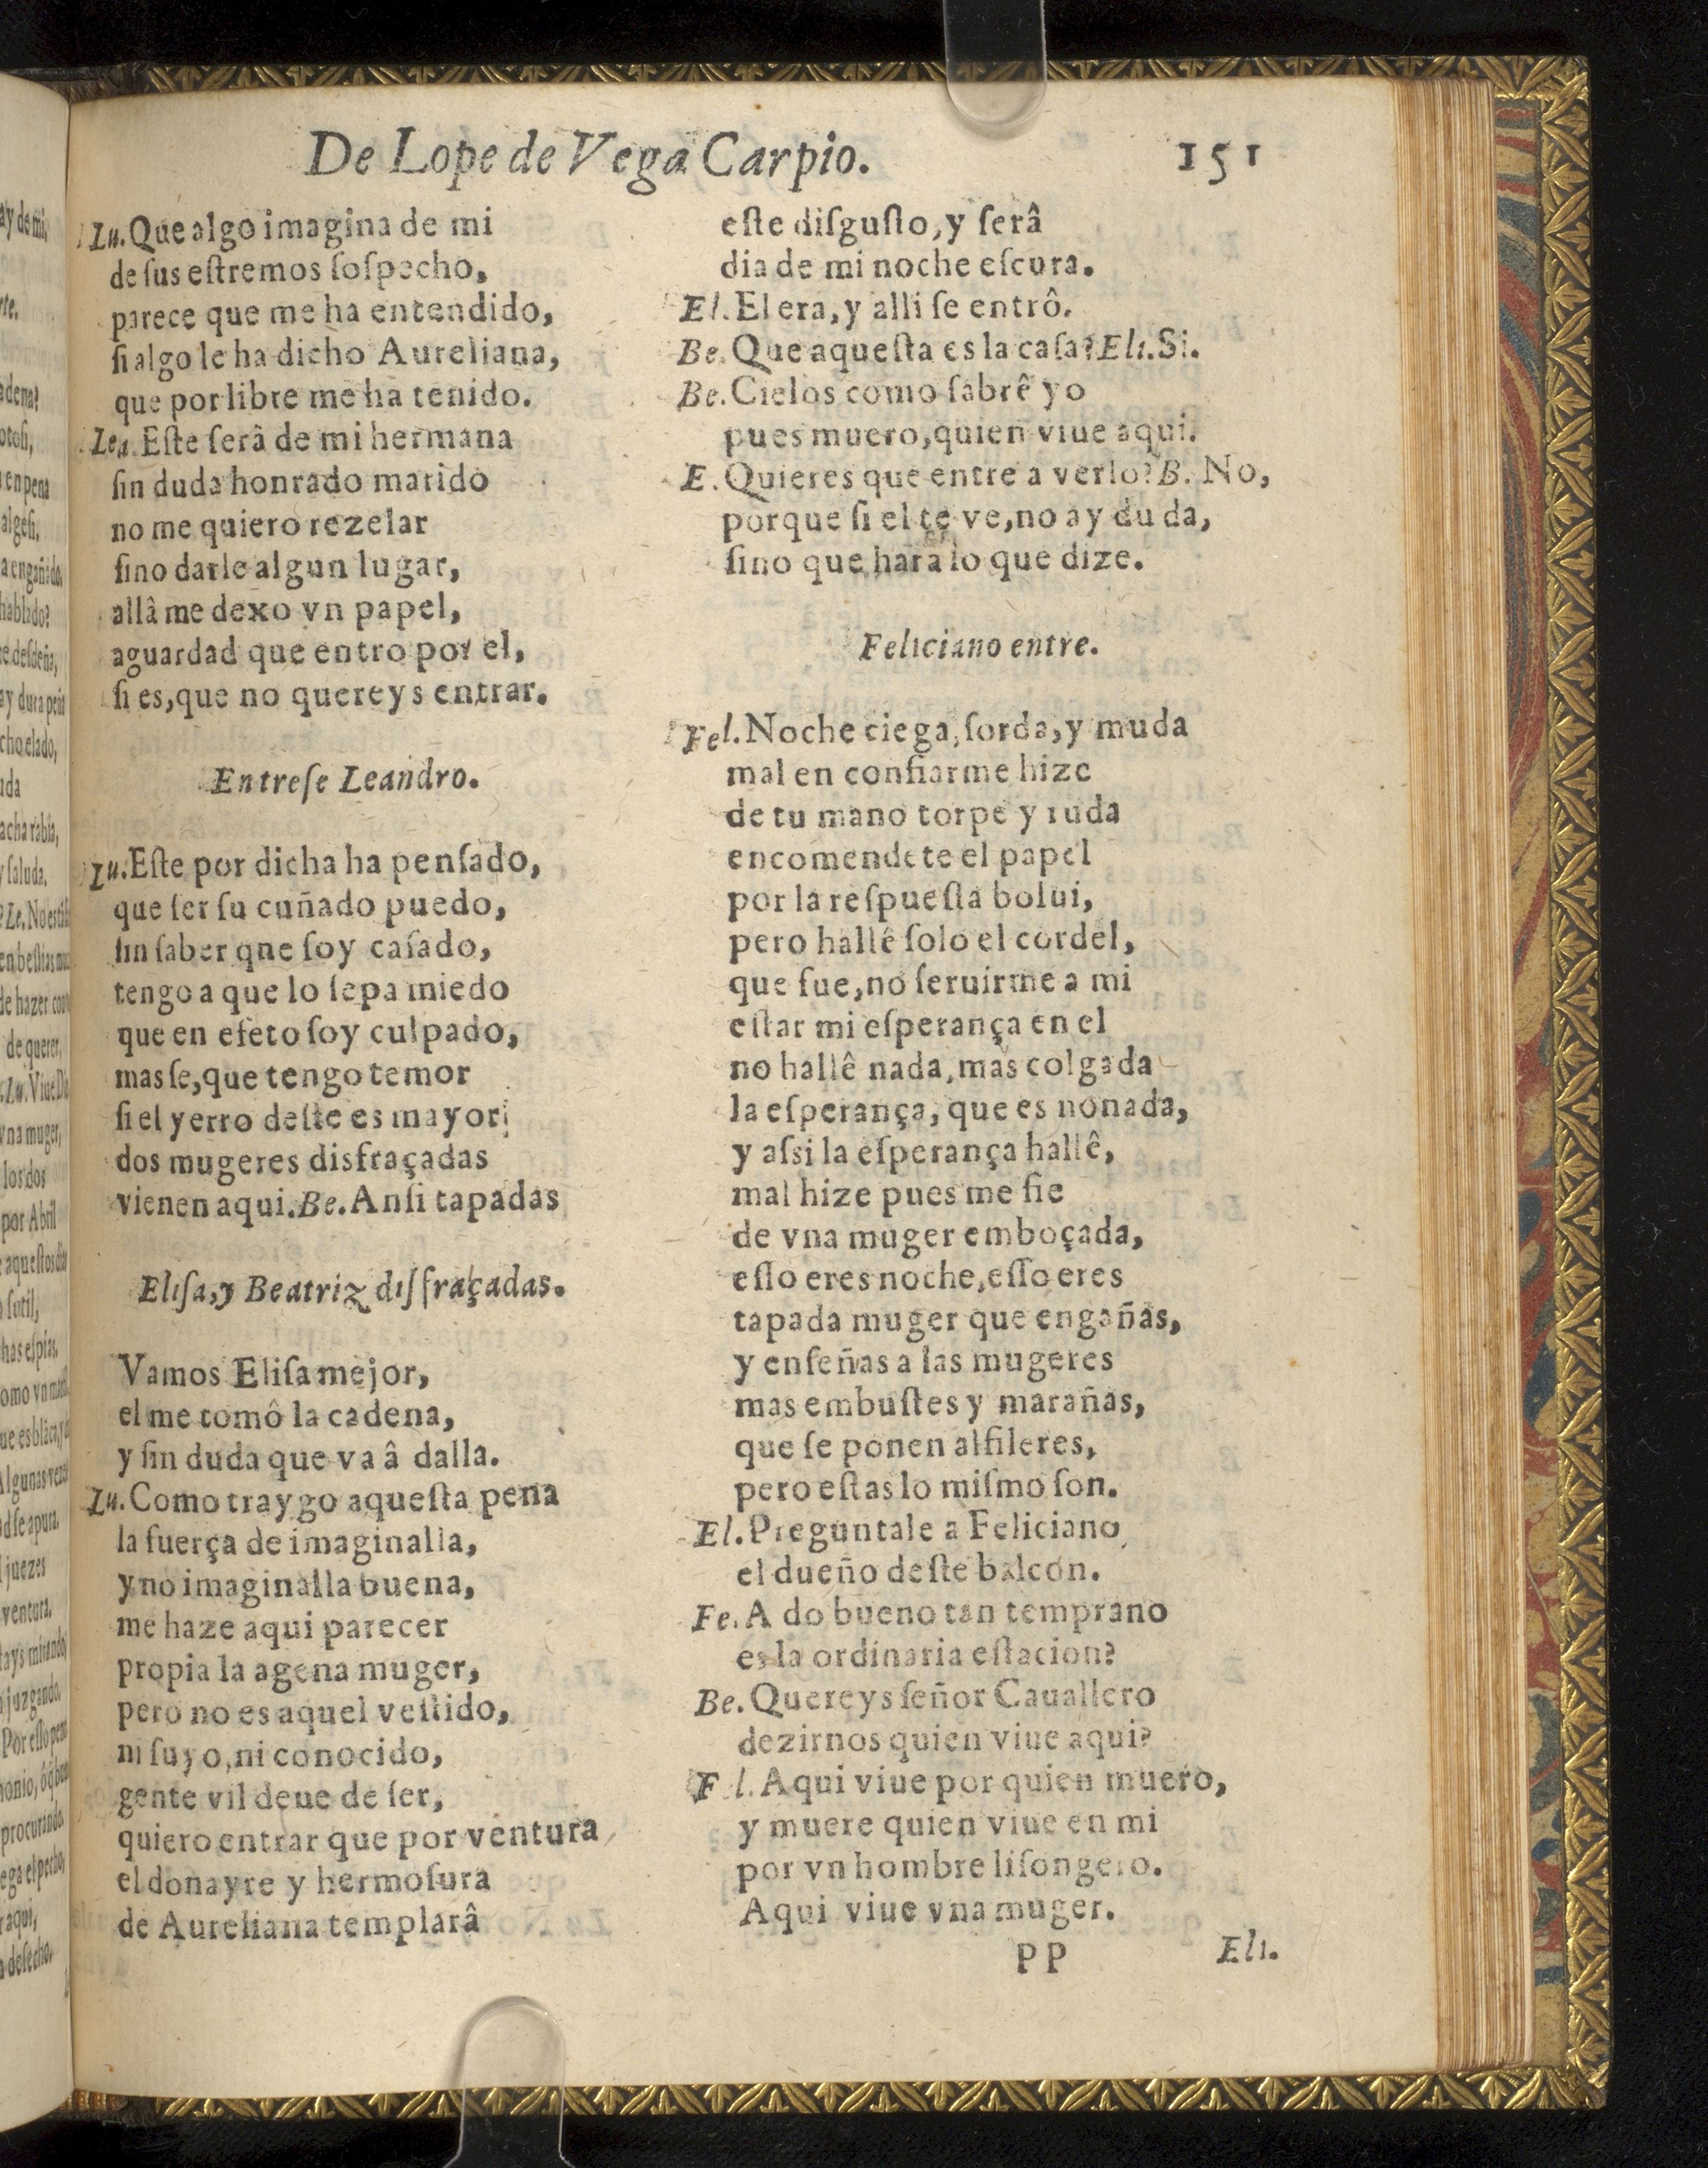 De Lope de Vega Carpio. 151
Lu. Que algo imagina de mi
de ſus eſtremos ſoſpecho,
parece que me ha entendido,
ſi algo le ha dicho Aureliana,
que por libre me ha tenido.
Lea. Eſte ſerâ de mi hermana
ſin duda honrado marido
no me quiero rezelar
ſino darle algun lugar,
allâ me dexo vn papel,
aguardad que entro por el,
ſi es, que no quereys entrar.
Entreſe Leandro.
Lu. Eſte por dicha ha penſado,
que ſer ſu cuñado puedo,
ſin ſaber qne ſoy caſado,
tengo a que lo ſepa miedo
que en efeto ſoy culpado,
mas ſe, que tengo temor
ſi el yerro deſte es mayor;
dos mugeres disfraçadas
vienen aqui. Be. Anſi tapadas
Eliſa, y Beatriz diſfraçadas.
Vamos Eliſa mejor,
el me tomô la cadena,
y ſin duda que va â dalla.
Lu. Como traygo aqueſta pena
la fuerça de imaginalla,
y no imaginalla buena,
me haze aqui parecer
propia la agena muger,
pero no es aquel veſtido,
ni ſuyo, ni conocido,
gente vil deue de ſer,
quiero entrar que por ventura
el donayre y hermoſura
de Aureliana templarâ
eſte diſguſto, y ſerâ
dia de mi noche eſcura.
El. El era, y alli ſe entrô.
Be. Que aqueſta es la caſa? Eli. Si.
Be. Cielos como ſabrê yo
pues muero, quien viue aqui.
E. Quieres que entre a verlo? B. No,
porque ſi el te ve, no ay duda,
ſino que hara lo que dize.
Feliciano entre.
Fel. Noche ciega, ſorda, y muda
mal en confiarme hize
de tu mano torpe y ruda
encomendete el papel
por la reſpueſta bolui,
pero hallê ſolo el cordel,
que fue, no ſeruirme a mi
eſtar mi eſperança en el
no hallê nada, mas colgada
la eſperança, que es nonada,
y aſsi la eſperança hallê,
mal hize pues me fie
de vna muger emboçada,
eſſo eres noche, eſſo eres
tapada muger que engañas,
y enſeñas a las mugeres
mas embuſtes y marañas,
que ſe ponen alfileres,
pero eſtas lo miſmo ſon.
El. Preguntale a Feliciano
el dueño deſte balcon.
Fe. A do bueno tan temprano
es la ordinaria eſtacion?
Be. Quereys ſeñor Cauallero
dezirnos quien viue aqui?
F l. Aqui viue por quien muero,
y muere quien viue en mi
por vn hombre liſongero.
Aqui viue vna muger.
PP Eli.